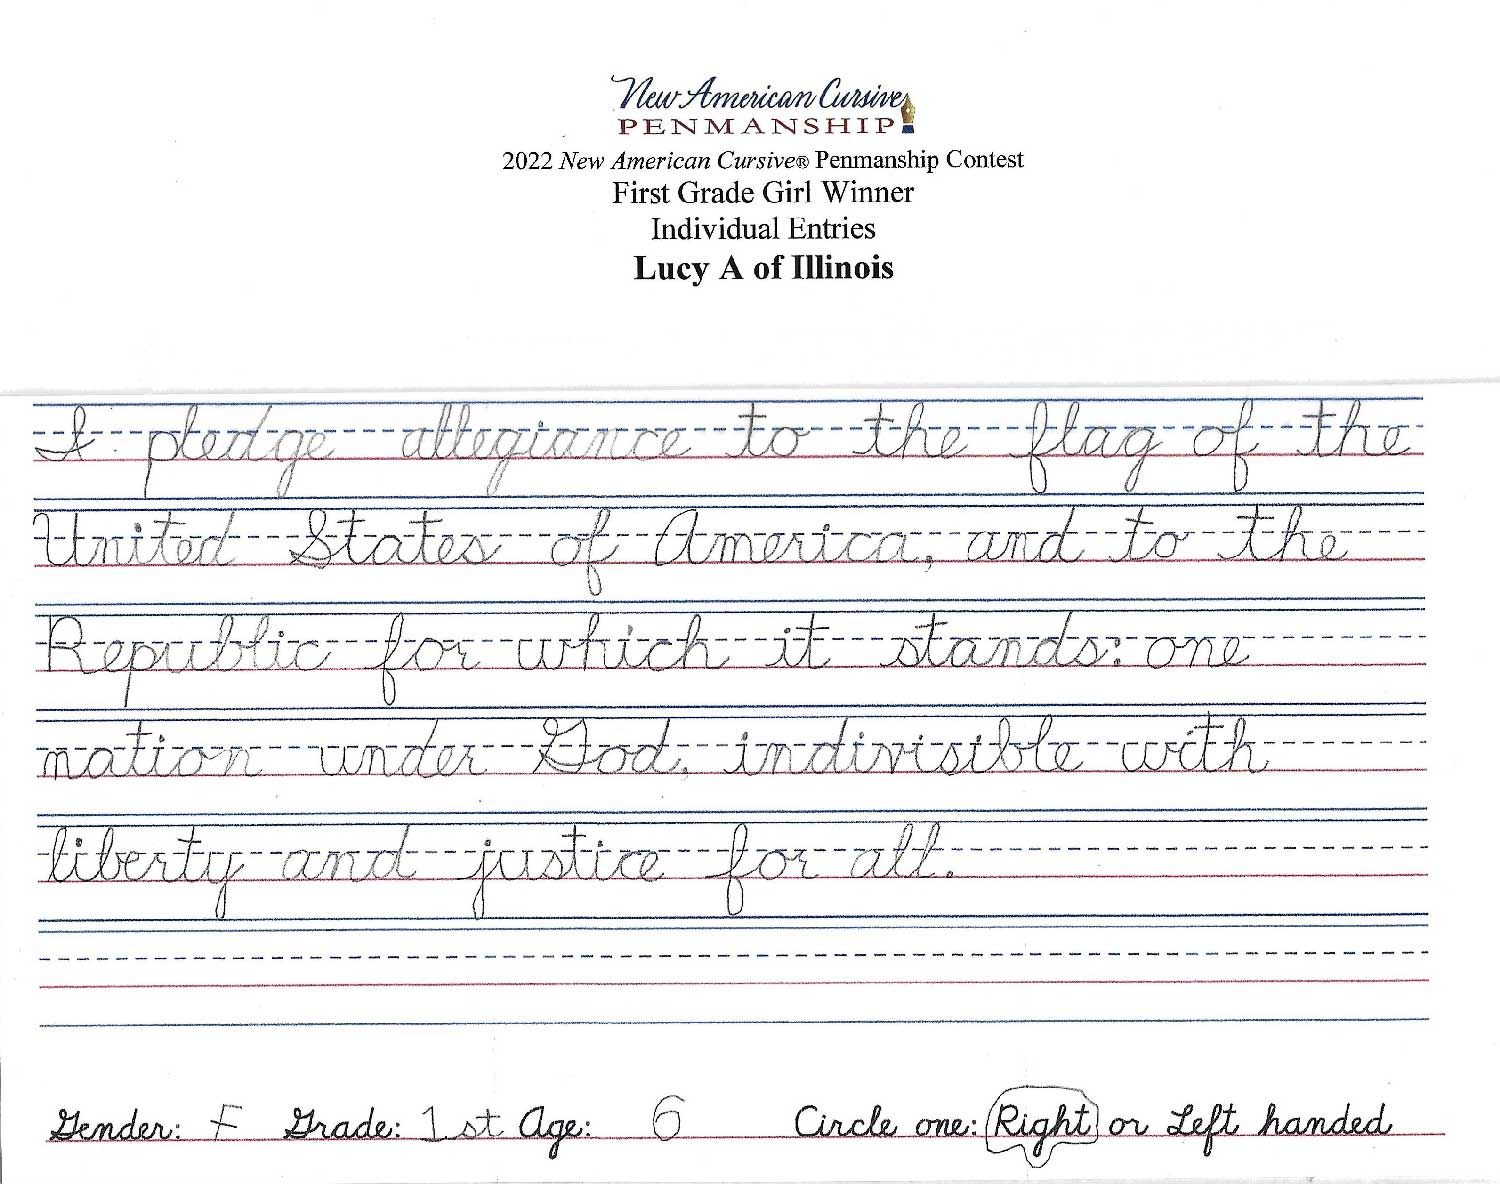 New American Cursive
PENMANSHIP
2022 New American Cursive® Penmanship Contest
First Grade Girl Winner
Individual Entries
Lucy A of Illinois
I pledge allegiance to the flag of the
United States of America, and to the
Republic for which it stands: one
nation under God, indivisible with
liberty and justice for all.
Gender: F Grade: 1st Age: 6 Circle one: Right or Left handed